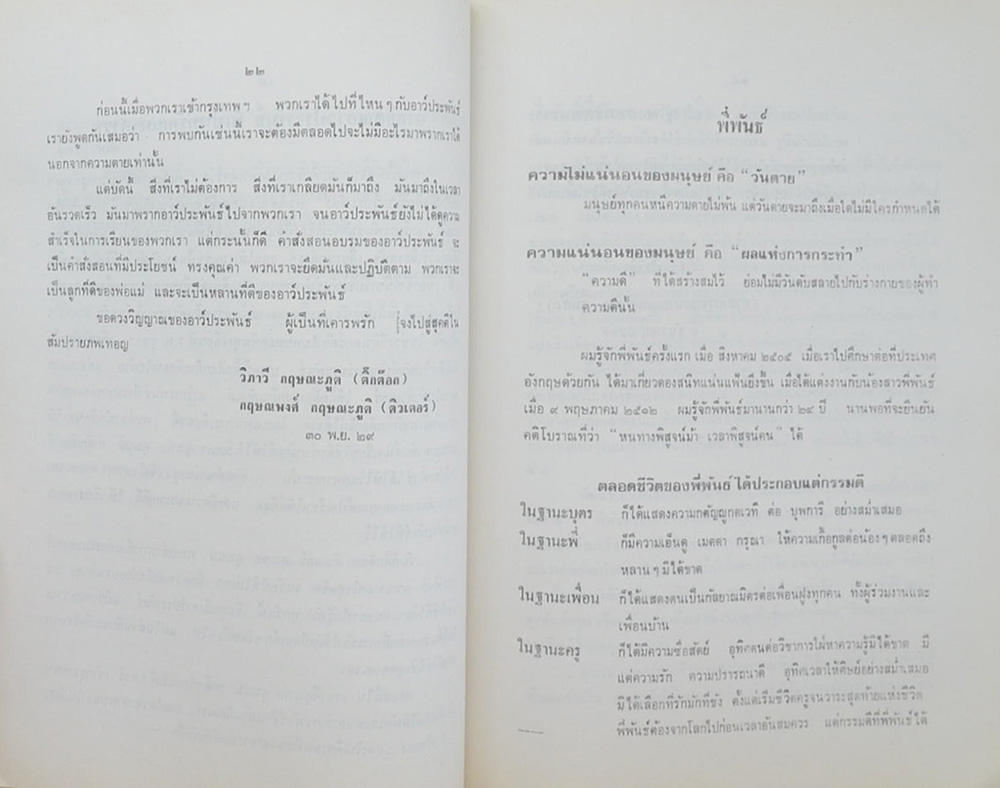 ๒๒
ก่อนนี้เมื่อพวกเราเข้ากรุงเทพฯ พวกเราได้ไปที่ไหนๆ กับอาว์ประพันธ์
เรายังพูดกันเสมอว่า การพบกันเช่นนี้เราจะต้องมีตลอดไปจะไม่มีอะไรมาพรากเราได้
นอกจากความตายเท่านั้น
แต่บัดนี้ สิ่งที่เราไม่ต้องการ สิ่งที่เราเกลียดมันก็มาถึง มันมาถึงในเวลา
อันรวดเร็ว มันมาพรากอาว์ประพันธ์ไปจากพวกเรา จนอาว์ประพันธ์ยังไม่ได้ดูความ
สำเร็จในการเรียนของพวกเรา แต่กระนั้นก็ดี คำสั่งสอนอบรมของอาว์ประพันธ์ จะ
เป็นคำสั่งสอนที่มีประโยชน์ ทรงคุณค่า พวกเราจะยึดมั่นและปฏิบัติตาม พวกเราจะ
เป็นลูกที่ดีของพ่อแม่ และจะเป็นหลานที่ดีของอาว์ประพันธ์
ขอดวงวิญญาณของอาว์ประพันธ์ ผู้เป็นที่เคารพรัก จงไปสู่สุคติใน
สัมปรายภพเทอญ
วิภาวี กฤษณะภูติ (ติ๊กต๊อก)
กฤษณพงศ์ กฤษณะภูติ (ติวเตอร์)
๓๐ พ.ย. ๒๙
พี่พันธ์
ความไม่แน่นอนของมนุษย์ คือ “วันตาย”
มนุษย์ทุกคนหนีความตายไม่พ้น แต่วันตายจะมาถึงเมื่อใดไม่มีใครกำหนดได้
ความแน่นอนของมนุษย์ คือ “ผลแห่งการกระทำ”
“ความดี” ที่ได้สร้างสมไว้ ย่อมไม่มีวันดับสลายไปกับร่างกายของผู้ทำ
ความดีนั้น
ผมรู้จักพี่พันธ์ครั้งแรก เมื่อ สิงหาคม ๒๕๐๕ เมื่อเราไปศึกษาต่อที่ประเทศ
อังกฤษด้วยกัน ได้มาเกี่ยวดองสนิทแน่นแฟ้นยิ่งขึ้น เมื่อได้แต่งงานกับน้องสาวพี่พันธ์
เมื่อ ๙ พฤษภาคม ๒๕๑๒ ผมรู้จักพี่พันธ์มานานกว่า ๒๔ ปี นานพอที่จะยืนยัน
คติโบราณที่ว่า “หนทางพิสูจน์ม้า เวลาพิสูจน์คน” ได้
ตลอดชีวิตของพี่พันธ์ ได้ประกอบแต่กรรมดี
ในฐานะบุตร ก็ได้แสดงความกตัญญูกตเวที ต่อ บุพการี อย่างสม่ำเสมอ
ในฐานะพี่ ก็มีความเอ็นดู เมตตา กรุณา ให้ความเกื้อกูลต่อน้องๆ ตลอดถึง
หลานๆ มิได้ขาด
ในฐานะเพื่อน ก็ได้แสดงตนเป็นกัลยาณมิตรต่อเพื่อนฝูงทุกคน ทั้งผู้ร่วมงานและ
เพื่อนบ้าน
ในฐานะครู ก็ได้มีความซื่อสัตย์ อุทิศตนต่อวิชาการใฝ่หาความรู้มิได้ขาด มี
แต่ความรัก ความปรารถนาดี อุทิศเวลาให้ศิษย์อย่างสม่ำเสมอ
มิได้เลือกที่รักมักที่ชัง ตั้งแต่เริ่มชีวิตครูจนวาระสุดท้ายแห่งชีวิต
พี่พันธ์ต้องจากโลกไปก่อนเวลาอันสมควร แต่กรรมดีที่พี่พันธ์ได้